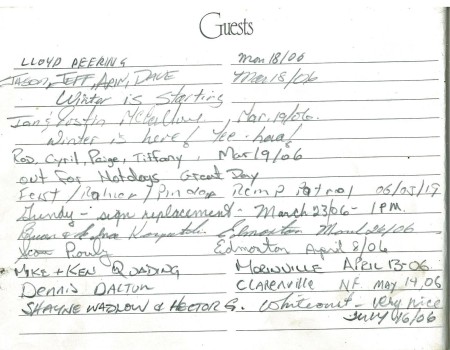 Guests
LLOYD DEERING Mar 18/06
JASON, JEFF, ARIN, DAVE Mar 18/06
Winter is starting
Justin Mar. 19/06.
Winter is here! Yee-haa!
Rod, Cyril, Paige, Tiffany, Mar 19/06
out for Hotdogs Great Day
Patrol 06/03/19
- sign replacement - March 23/06 - 1 PM.
Edmonton March 26/06
Edmonton April 8/06
MIKE + KEN QUADING MORINVILLE APRIL 13-06
DENNIS DALTON CLARENVILLE NF MAY 14, 06
SHAYNE WADLOW & HECTOR G. Whitecourt - Very nice
July 16/06